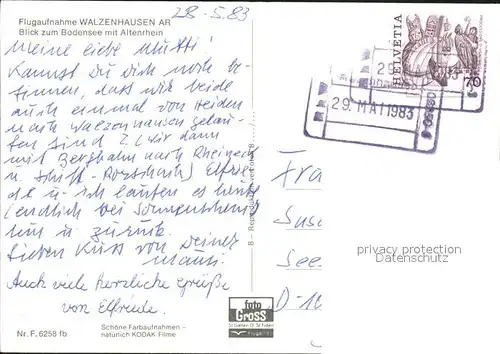 Flugaufnahme WALZENHAUSEN AR
Blick zum Bodensee mit Altenrhein
28.5.83
Meine liebe Mutti!
Kannst du dich noch be-
sinnen, dass wir beide
auch einmal von Heiden
nach Walzenhausen gelau-
fen sind u. wir dann
mit Bergbahn nach Rheineck
u. Schiff - Rorschach) Elfrie-
de u. ich laufen es heute
(endlich bei Sonnenschein
hin u. zurück.
Lieben Kuss von Deiner
Mausi.
Auch viele herzliche Grüße
von Elfriede.
Nr. F. 6258 fb
Schöne Farbaufnahmen –
natürlich KODAK Filme
foto
Gross
St. Gallen
HELVETIA
70
29. MAI 1983
Frau
Sus
See
D-1
privacy protection
Datenschutz